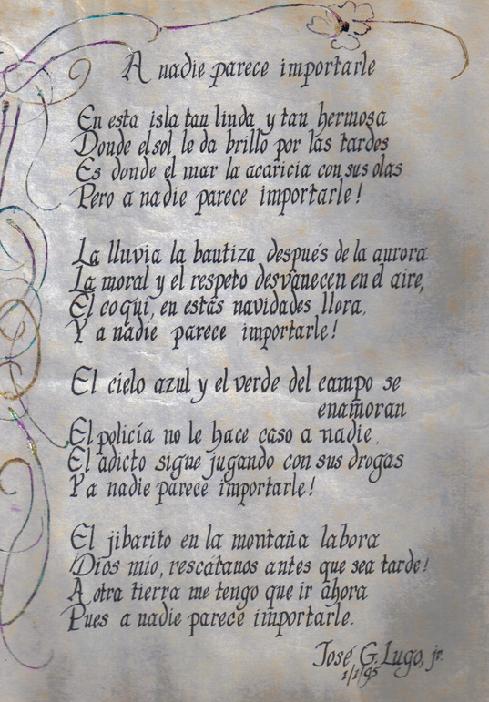 A nadie parece importarle
En esta isla tan linda y tan hermosa
Donde el sol le da brillo por las tardes
Es donde el mar la acaricia con sus olas
Pero a nadie parece importarle!
La lluvia la bautiza después de la aurora
La moral y el respeto desvanecen en el aire,
El coquí, en estas navidades llora,
Y a nadie parece importarle!
El cielo azul y el verde del campo se
enamoran
El policía no le hace caso a nadie,
El adicto sigue jugando con sus drogas
Y a nadie parece importarle!
El jibarito en la montaña labora
Dios mío, rescátanos antes que sea tarde!
A otra tierra me tengo que ir ahora
Pues a nadie parece importarle.
José G. Lugo, jr.
1/1/95